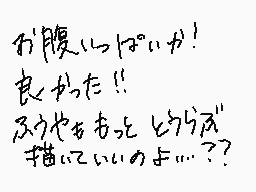 お腹いっぱいか!
良かった!!
ふうやももっと どうらぶ
描いていいのよ…??